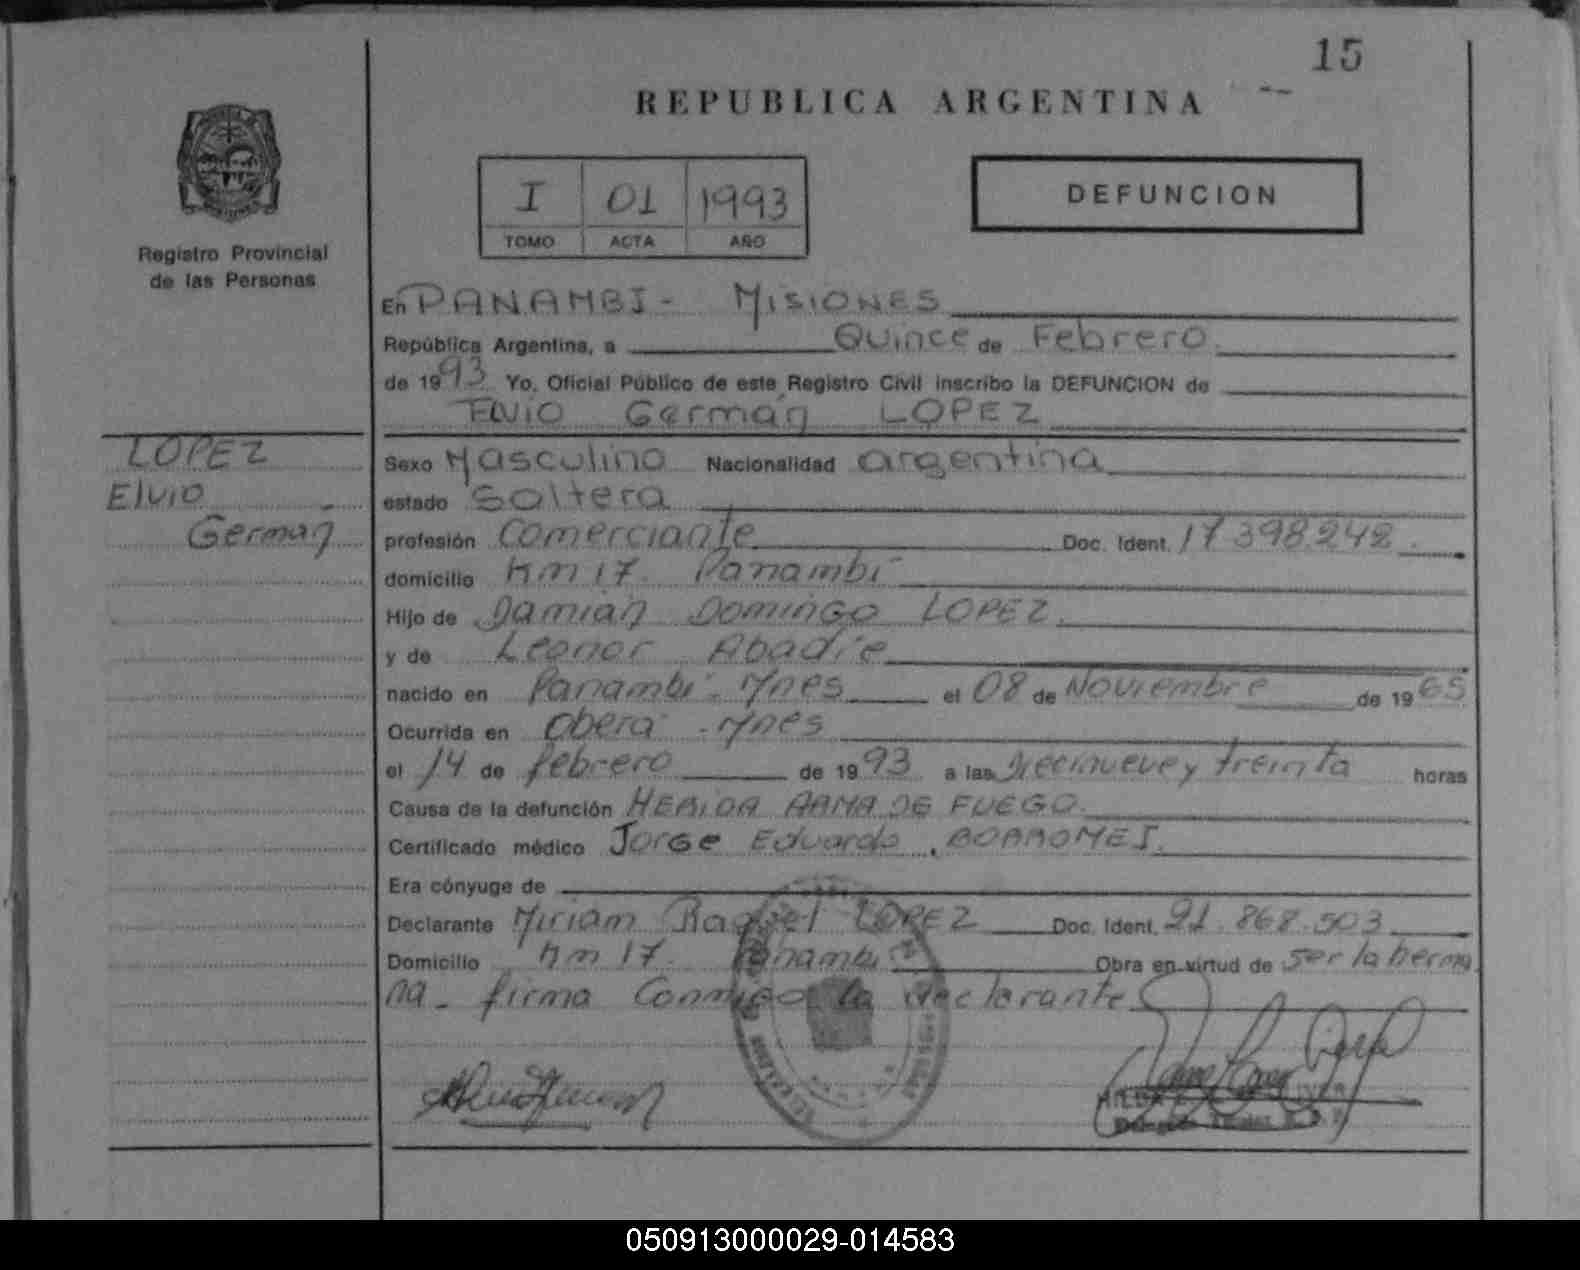 15
REPUBLICA ARGENTINA
I 01 1993
TOMO ACTA AÑO
DEFUNCION
Registro Provincial
de las Personas
En PANAMBI - MISIONES
República Argentina, a Quince de Febrero
de 1993 Yo, Oficial Público de este Registro Civil inscribo la DEFUNCION de
Elvio Germán LOPEZ
LOPEZ
Elvio
Germán
Sexo Masculino Nacionalidad argentina
estado Soltera
profesión Comerciante Doc. Ident. 17 398.242.
domicilio Km 17. Panambí
Hijo de Damián Domingo LOPEZ.
y de Leonor Abadíe
nacido en Panambí - Mnes el 08 de Noviembre de 1965
Ocurrida en Oberá - Mnes
el 14 de febrero de 1993 a las diecinueve y treinta horas
Causa de la defunción HERIDA ARMA DE FUEGO.
Certificado médico Jorge Eduardo BORROMEI.
Era cónyuge de
Declarante Miriam Raquel LOPEZ Doc. Ident. 21.868.503
Domicilio Km 17. Panambí Obra en virtud de ser la herma
na - firma Conmigo la declarante
050913000029-014583